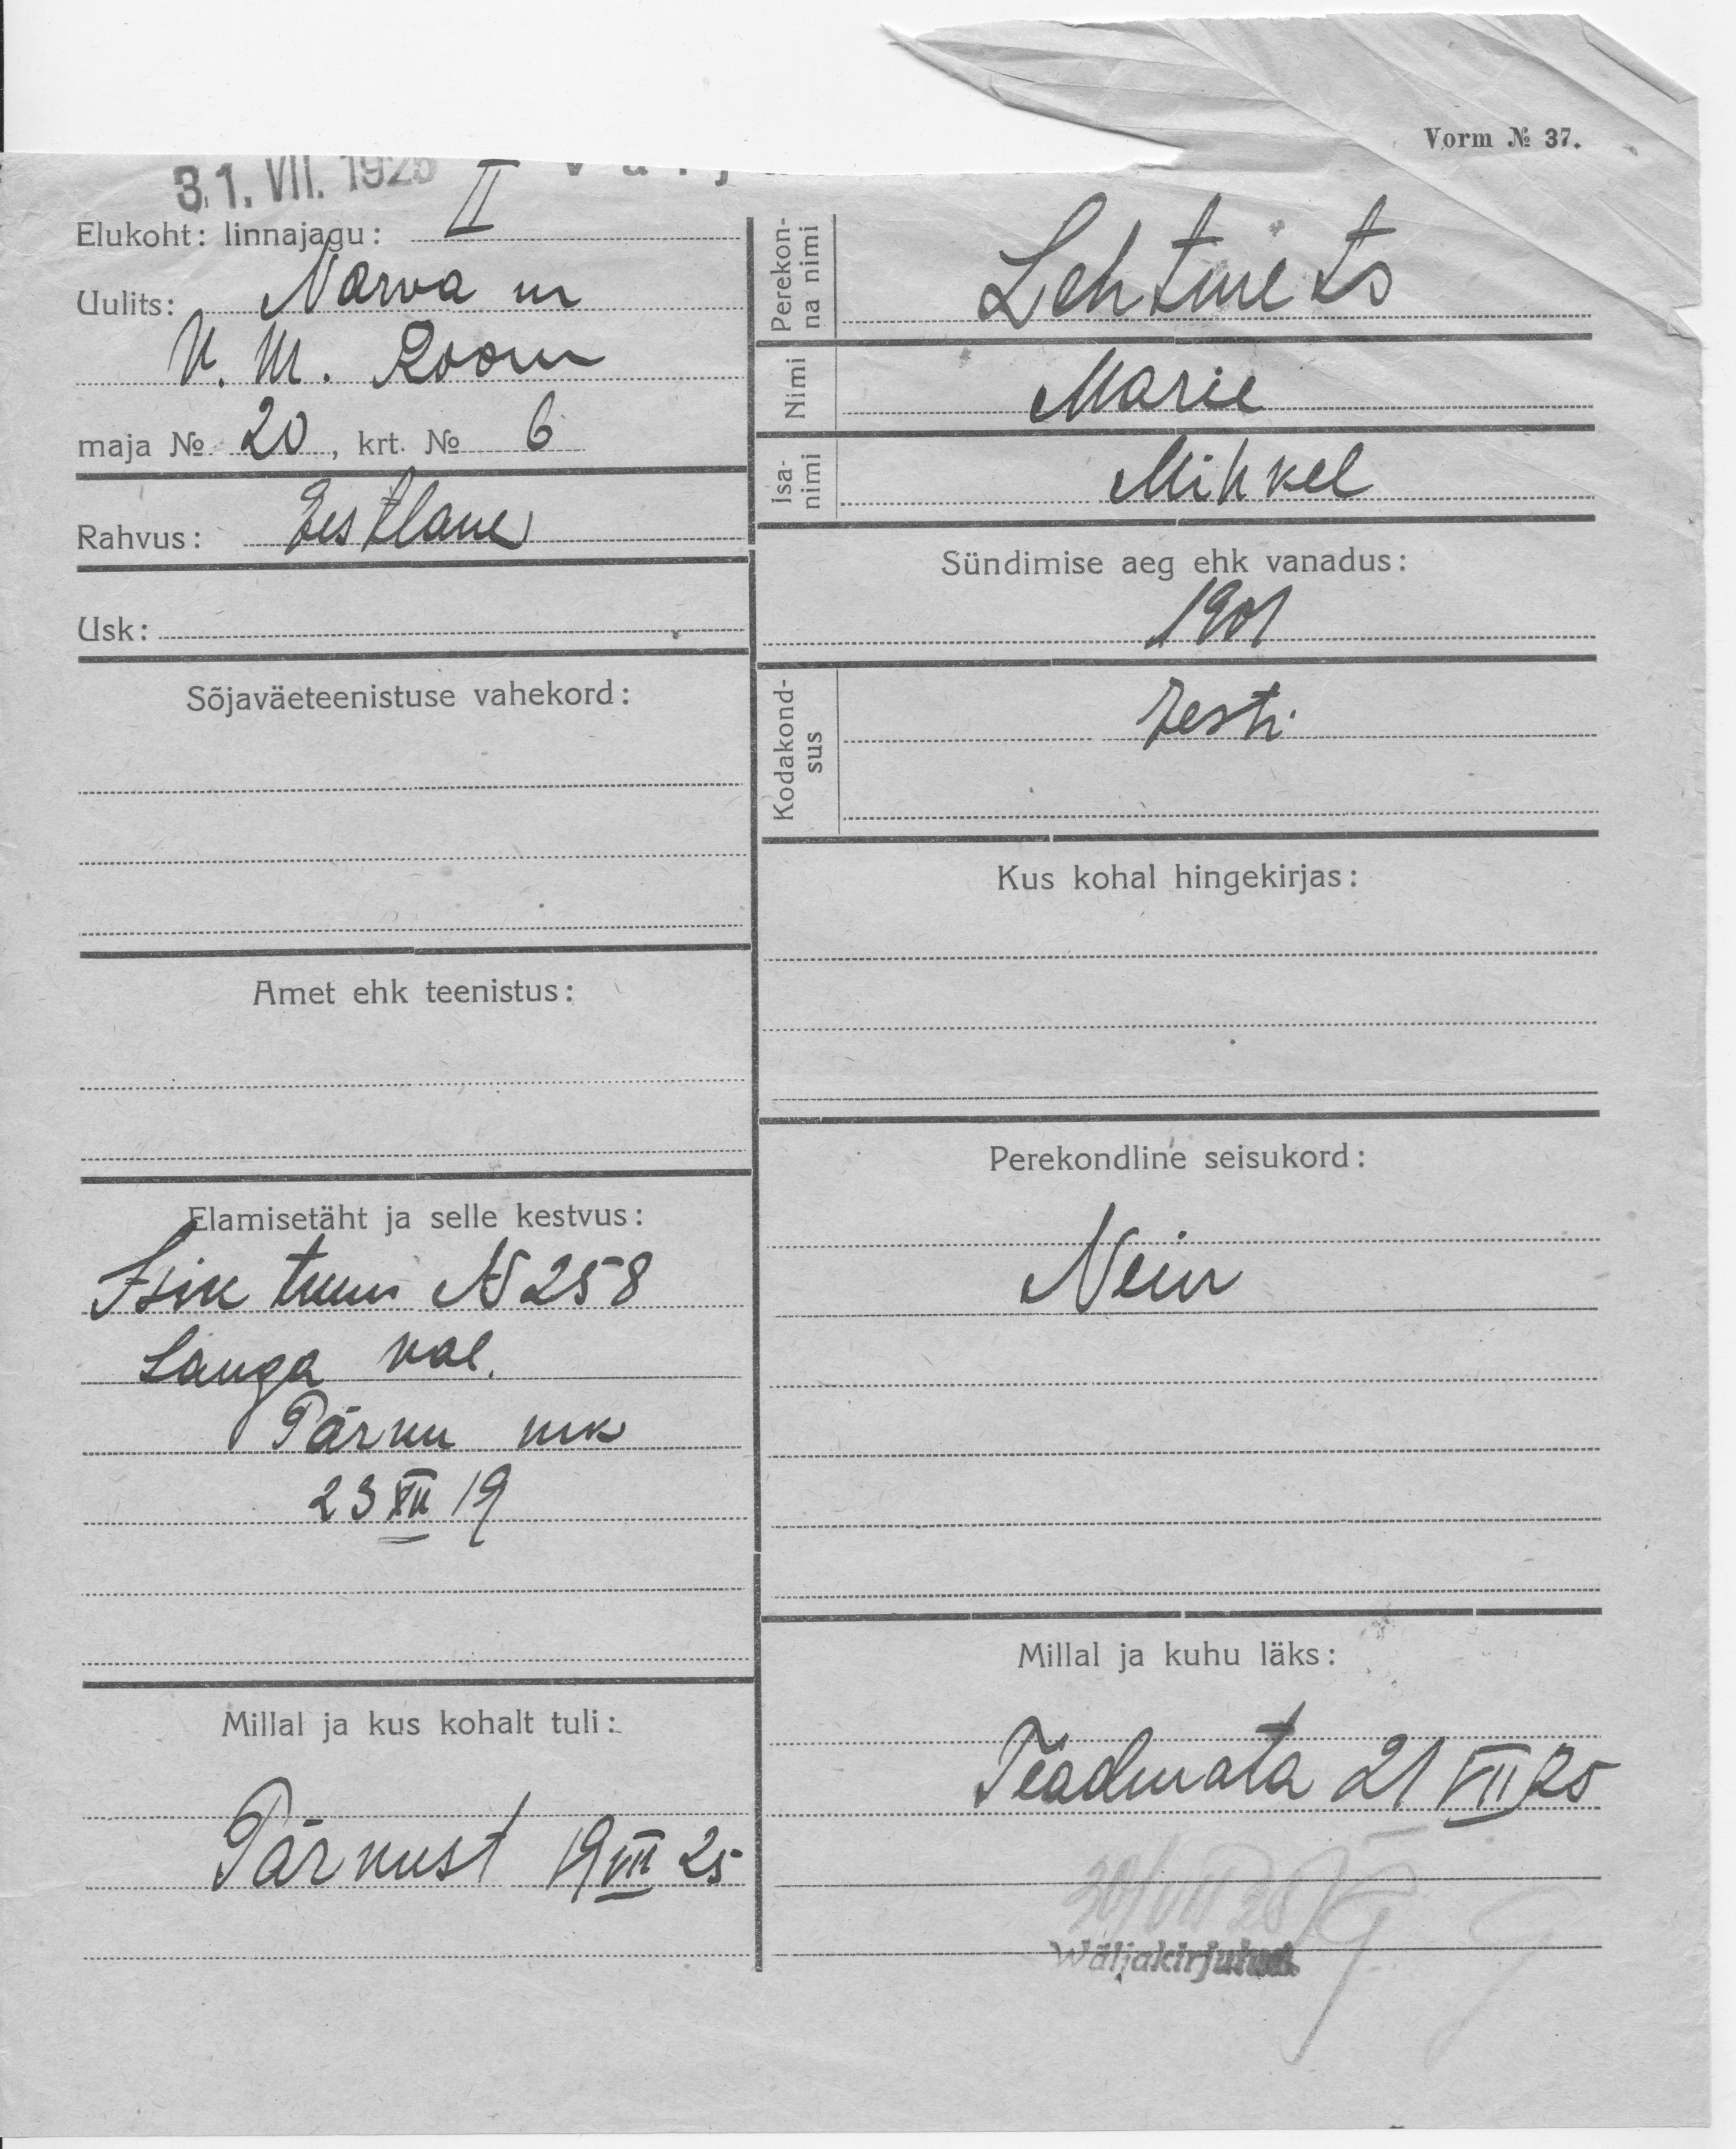 Vorm № 37.
31. VII. 1925
Elukoht: linnajagu: II
Uulits: Narva m
N. M. Room
maja № 20, krt. № 6
Rahvus: Eestlane
Usk:
Sõjaväeteenistuse vahekord:
Amet ehk teenistus:
Elamisetäht ja selle kestvus:
Isik tunn N 258
Sauga val.
Pärnu mk
23 XII 19
Millal ja kus kohalt tuli:
Pärnust 19 VII 25
Perekon-
na nimi
Lehtmets
Nimi
Marie
Isa-
nimi
Mihkel
Sündimise aeg ehk vanadus:
1901
Kodakond-
sus
Eesti
Kus kohal hingekirjas:
Perekondline seisukord:
Neiu
Millal ja kuhu läks:
Teadmata 21 VII 25
30/VII 25
Wäljakirjutud.